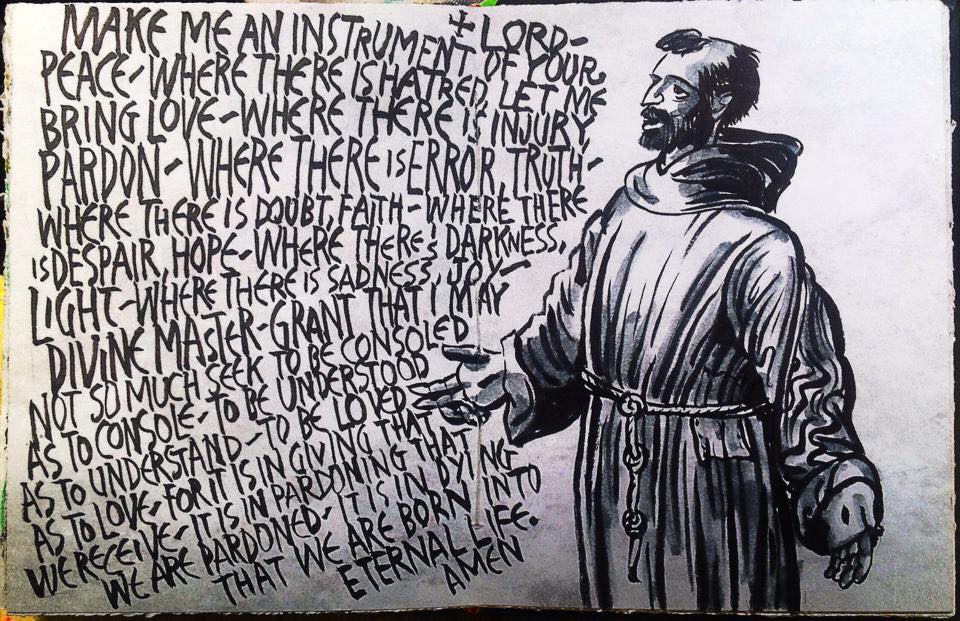 + LORD-
MAKE ME AN INSTRUMENT OF YOUR
PEACE - WHERE THERE IS HATRED, LET ME
BRING LOVE - WHERE THERE IS INJURY,
PARDON - WHERE THERE IS ERROR, TRUTH -
WHERE THERE IS DOUBT, FAITH - WHERE THERE
IS DESPAIR, HOPE - WHERE THERE IS DARKNESS,
LIGHT - WHERE THERE IS SADNESS, JOY -
DIVINE MASTER - GRANT THAT I MAY
NOT SO MUCH SEEK TO BE CONSOLED
AS TO CONSOLE - TO BE UNDERSTOOD
AS TO UNDERSTAND - TO BE LOVED
AS TO LOVE - FOR IT IS IN GIVING THAT
WE RECEIVE - IT IS IN PARDONING THAT
WE ARE PARDONED - IT IS IN DYING
THAT WE ARE BORN INTO
ETERNAL LIFE.
AMEN